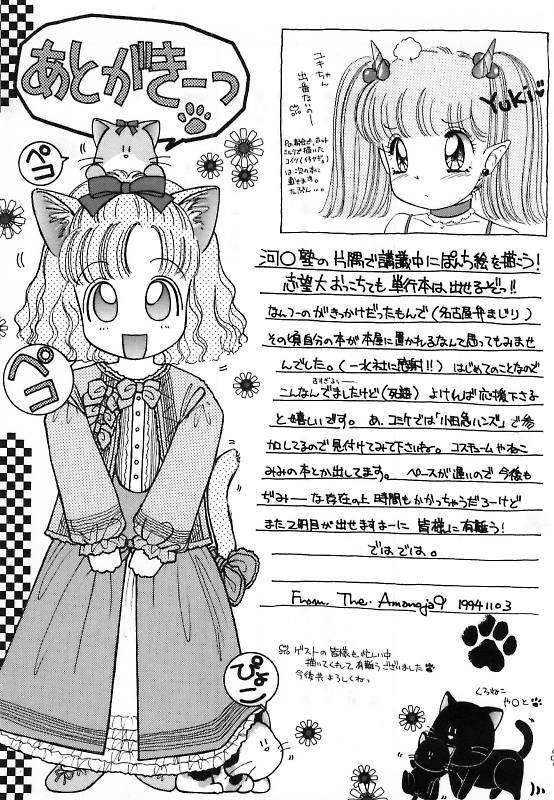 あとがきーっ
ペコ
ペコ
ぴょこ
ユキちゃん
出番ない〜
は次の本に
載せます。
たぶん…。
Yuki
河〇塾の片隅で講議中にぽんち絵を描こう！
志望大おっこちても、単行本は、出せるぞっ!!
なんつーのがきっかけだったもんで（名古屋弁まじり）
その頃自分の本が本屋に置かれるなんて思ってもみませ
んでした。（一水社に感謝!!）はじめてのことなので
古すぎるっ
こんなんでましたけど（死語）よければ応援下さる
と嬉しいです。あ、コミケでは「小田急ハンズ」で参
加してるので見付けてみて下さいね。コスチュームやねこ
みみの本とか出してます。ペースが遅いので今後も
ぢみーな存在の上時間もかかっちゃうだろーけど
またて明日が出せますまーに皆様に有難う！
ではでは。
From. The. Amanoja9 1994.11.03
ゲストの皆様も忙しい中
描いてくれて有難うございました
今後共よろしくねっ
くろねこ
や〇と